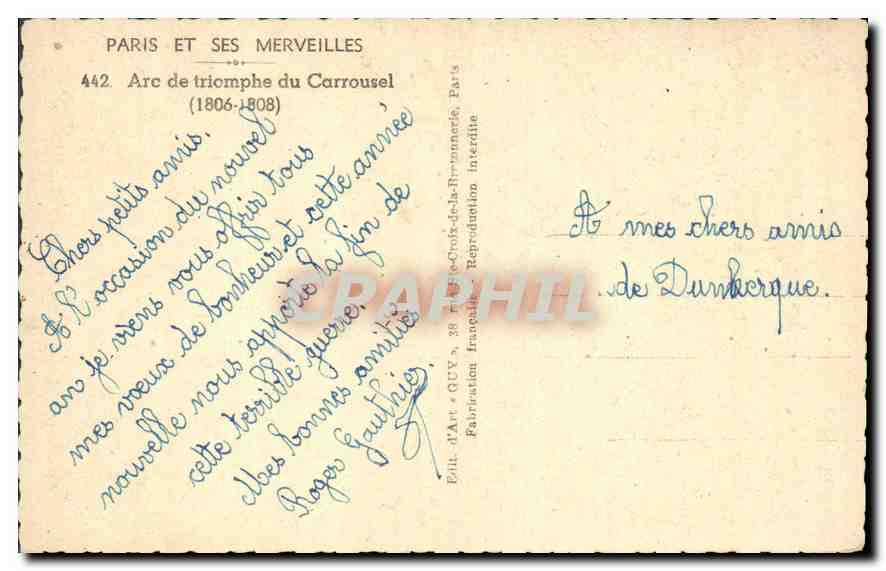 PARIS ET SES MERVEILLES
442. Arc de triomphe du Carrousel
(1806-1808)
Chers petits amis.
A l'occasion du nouvel
an je viens vous offrir tous
mes vœux de bonheur et cette année
nouvelle nous apporte la fin de
cette terrible guerre.
Mes bonnes amitiés
Roger Gauthier.
Edit. d'Art « GUY », 38 rue Ste-Croix-de-la-Bretonnerie, Paris
Fabrication française. Reproduction interdite
A mes chers amis
de Dunkerque.
CPAPHIL